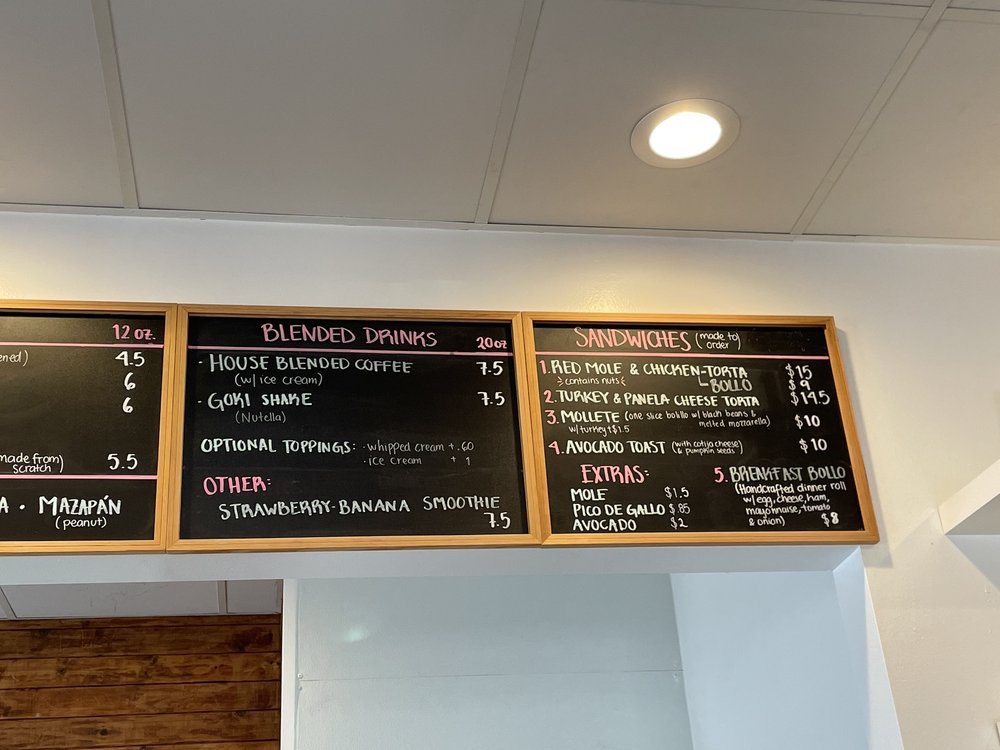 12 oz.
ened) 4.5
6
6
made from)
scratch) 5.5
A • MAZAPÁN
(peanut)
BLENDED DRINKS 20oz
· HOUSE BLENDED COFFEE 7.5
(w/ ice cream)
· GOKI SHAKE 7.5
(Nutella)
OPTIONAL TOPPINGS: · whipped cream + .60
· ice cream + 1
OTHER:
STRAWBERRY-BANANA SMOOTHIE
7.5
SANDWICHES (made to)
order
1. RED MOLE & CHICKEN-TORTA $15
contains nuts BOLLO $9
2. TURKEY & PANELA CHEESE TORTA $14.5
3. MOLLETE (one slice bolillo w/ black beans & $10
w/turkey+$1.5 melted mozzarella)
4. AVOCADO TOAST (with cotija cheese) $10
& pumpkin seeds
EXTRAS:
MOLE $1.5
PICO DE GALLO $.85
AVOCADO $2
5. BREAKFAST BOLLO
(Handcrafted dinner roll
w/ egg, cheese, ham,
mayonnaise, tomato
& onion) $8